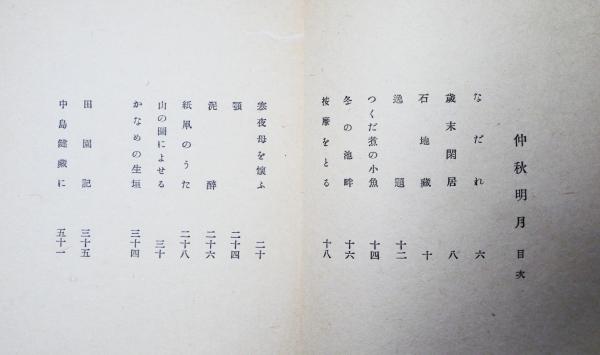 仲秋明月 目次
なだれ 六
歳末閑居 八
石地蔵 十
逸題 十二
つくだ煮の小魚 十四
冬の池畔 十六
按摩をとる 十八
寒夜母を懐ふ 二十
顎 二十四
泥酔 二十六
紙凧のうた 二十八
山の図によせる 三十
かなめの生垣 三十四
田園記 三十五
中島健蔵に 五十一